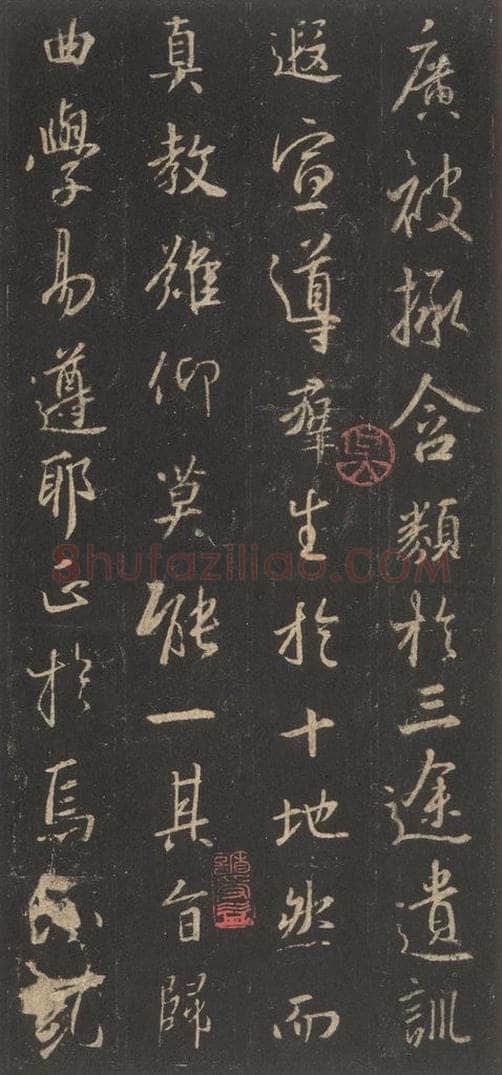 廣被拯含類於三途遺訓
遐宣導羣生於十地然而
真教難仰莫能一其旨歸
曲學易遵耶正於焉
Shufaziliao.COM